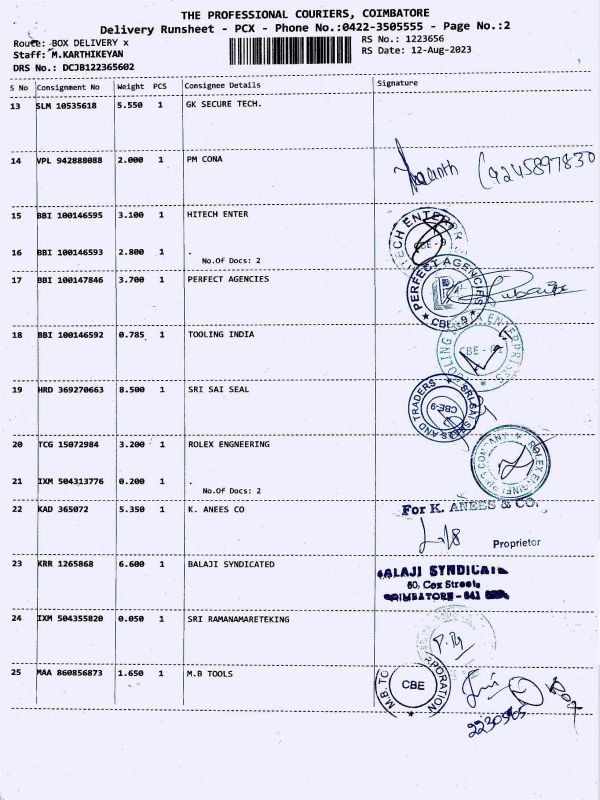 THE PROFESSIONAL COURIERS, COIMBATORE
Delivery Runsheet - PCX - Phone No.:0422-3505555 - Page No.:2
Route: BOX DELIVERY x
RS No.: 1223656
Staff: M.KARTHIKEYAN
RS Date: 12-Aug-2023
DRS No.: DCJB122365602
S No Consignment No Weight PCS Consignee Details Signature
13 SLM 10535618 5.550 1 GK SECURE TECH.
14 VPL 942888088 2.000 1 PM CONA
9245897830
15 BBI 100146595 3.100 1 HITECH ENTER
16 BBI 100146593 2.800 1 .
No.Of Docs: 2
CBE-9
17 BBI 100147846 3.700 1 PERFECT AGENCIES
PERFECT AGENCIES
CBE-9
18 BBI 100146592 0.785 1 TOOLING INDIA
ENTERPRISES
CBE
19 HRD 369270663 8.500 1 SRI SAI SEAL
SRI SAI SEALS AND TRADERS
CBE-9
20 TCG 15072984 3.200 1 ROLEX ENGNEERING
21 IXM 504313776 0.200 1 .
No.Of Docs: 2
ROLEX
22 KAD 365072 5.350 1 K. ANEES CO
For K. ANEES & CO.
Proprietor
23 KRR 1265868 6.600 1 BALAJI SYNDICATED
BALAJI SYNDICATE
60, Cox Street,
COIMBATORE - 641
24 IXM 504355820 0.050 1 SRI RAMANAMARETEKING
25 MAA 860856873 1.650 1 M.B TOOLS
CBE